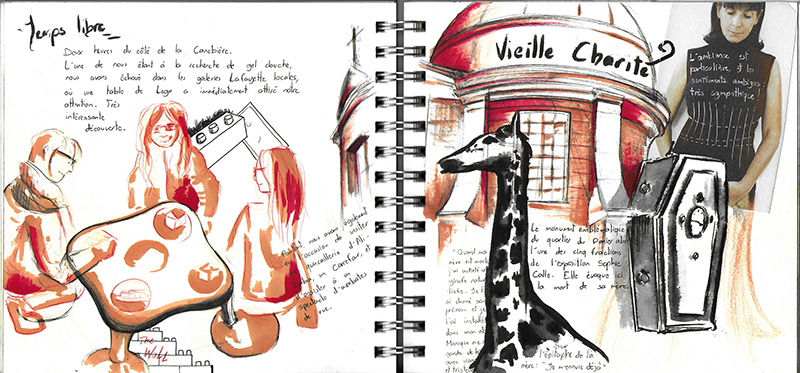 Temps libre
Deux heures du côté de la Canebière.
L'une de nous étant à la recherche de gel douche,
nous avons échoué dans les galeries Lafayette locales,
où une table de Lego a immédiatement attiré notre
attention. Très
intéressante
découverte.
nous avons également
l'occasion de visiter
quincaillerie d'Ali
un Carrefour, et
d'assister à un
spectacle d'acrobates
de rue.
The Wall
Vieille Charité
L'ambiance est
particulière, et les
sentiments ambigus :
très sympathique !
Le monument emblématique
du quartier du Panier abrite
l'une des cinq fractions
de l'exposition Sophie
Calle. Elle évoque ici
la mort de sa mère.
"Quand ma
mère est morte
j'ai acheté une
girafe
Je lui
ai donné son
prénom et
l'ai installée
dans mon
Monique me
avec
et
Sur
l'épitaphe de la
mère : "Je m'ennuie déjà"